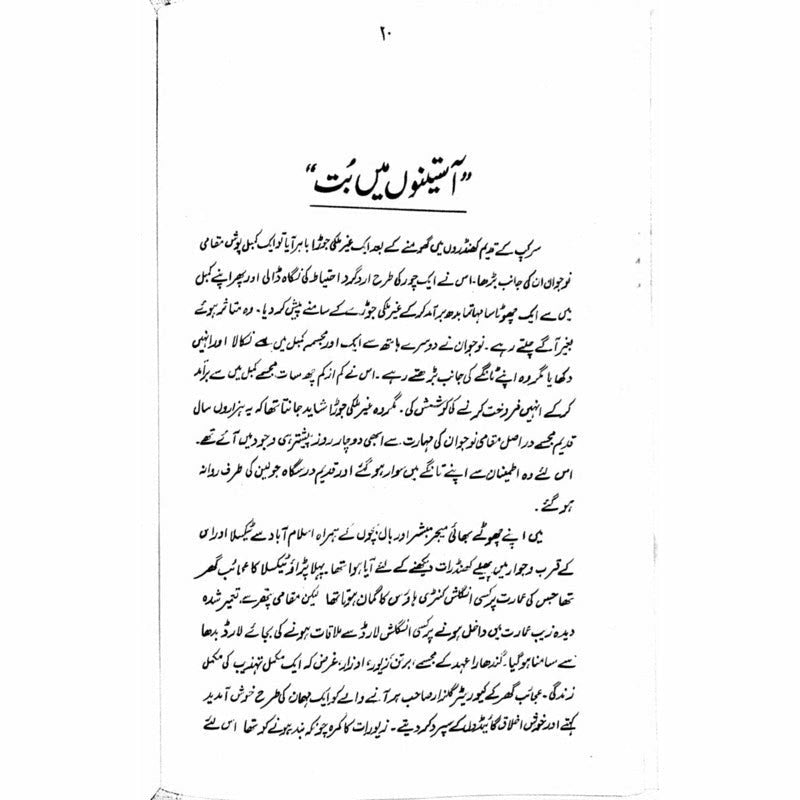 ۲۰
”آستینوں میں بُت“
سرکپ کے قدیم کھنڈروں میں گھومنے کے بعد ایک غیر ملکی جوڑا باہر آیا تو ایک کمبل پوش مقامی
نوجوان ان کی جانب بڑھا۔ اس نے ایک چور کی طرح ارد گرد احتیاط کی نگاہ ڈالی اور پھر اپنے کمبل
میں سے ایک چھوٹا سا مہاتما بدھ برآمد کر کے غیر ملکی جوڑے کے سامنے پیش کر دیا۔ وہ متاثر ہوئے
بغیر آگے چلتے رہے۔ نوجوان نے دوسرے ہاتھ سے ایک اور مجسمہ کمبل میں سے نکالا اور انہیں
دکھایا مگر وہ اپنے تانگے کی جانب بڑھتے رہے۔ اس نے کم از کم چھ سات مجسمے کمبل میں سے برآمد
کر کے انہیں فروخت کرنے کی کوشش کی۔ مگر وہ غیر ملکی جوڑا شاید جانتا تھا کہ یہ ہزاروں سال
قدیم مجسمے دراصل مقامی نوجوان کی مہارت سے ابھی دو چار روز پیشتر ہی وجود میں آئے تھے۔
اس لئے وہ اطمینان سے اپنے تانگے میں سوار ہو گئے اور قدیم درسگاہ جولین کی طرف روانہ
ہو گئے۔
میں اپنے چھوٹے بھائی میجر مبشر اور بال بچوں کے ہمراہ اسلام آباد سے ٹیکسلا اور اس
کے قرب و جوار میں پھیلے کھنڈرات دیکھنے کے لئے آیا ہوا تھا۔ پہلا پڑاؤ ٹیکسلا کا عجائب گھر
تھا جس کی عمارت پر کسی انگلش کنٹری ہاؤس کا گمان ہوتا تھا لیکن مقامی پتھر سے تعمیر شدہ
دیدہ زیب عمارت میں داخل ہونے پر کسی انگلش لارڈ سے ملاقات ہونے کی بجائے لارڈ بدھا
سے سامنا ہو گیا۔ گندھارا عہد کے مجسمے، برتن، زیور، اوزار، غرض کہ ایک مکمل تہذیب کی مکمل
زندگی۔ عجائب گھر کے کیوریٹر گلزار صاحب ہر آنے والے کو ایک مہمان کی طرح خوش آمدید
کہتے اور خوش اخلاق گائیڈوں کے سپرد کر دیتے۔ زیورات کا کمرہ چونکہ بند ہونے کو تھا اس لئے